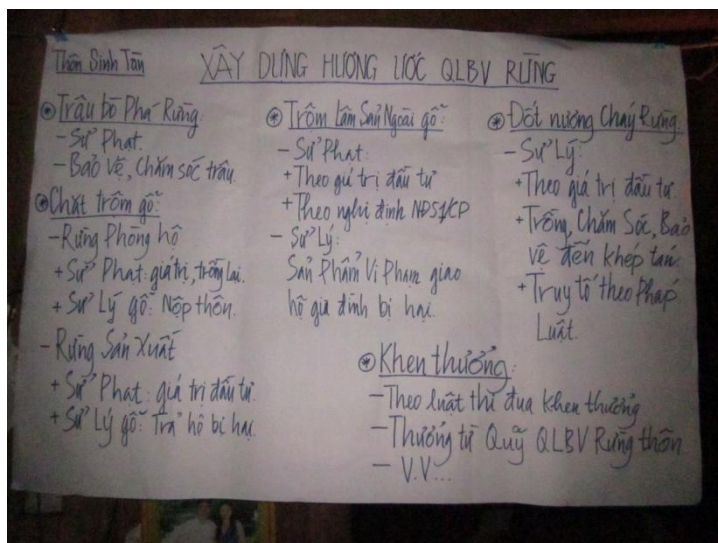 Thôn Sinh Tàn
XÂY DỰNG HƯƠNG ƯỚC QLBV RỪNG
Trâu bò Phá Rừng:
- Sử Phat.
- Bảo vệ, Chăm sóc trâu.
Chặt trộm gỗ:
- Rừng Phòng hộ
+ Sử Phat: giá trị, trồng lại.
+ Sử Lý gỗ: Nộp thôn.
- Rừng Sản Xuất
+ Sử Phat: giá trị đầu tư
+ Sử Lý gỗ: Trả hộ bị hại.
Trộm Lâm Sản Ngoài gỗ:
- Sử Phat:
+ Theo giá trị đầu tư
+ Theo nghị định
- Sử Lý:
Sản Phẩm Vi Phạm giao
hộ gia đình bị hại.
Đốt nương Cháy Rừng.
- Sử Lý:
+ Theo giá trị đầu tư
+ Trồng, Chăm Sóc, Bảo
vệ đến khép tán.
+ Truy tố theo Pháp
Luật.
Khen thưởng:
- Theo luật thi đua khen thưởng
- Thưởng từ Quỹ QLBV Rừng thôn
- V.V...